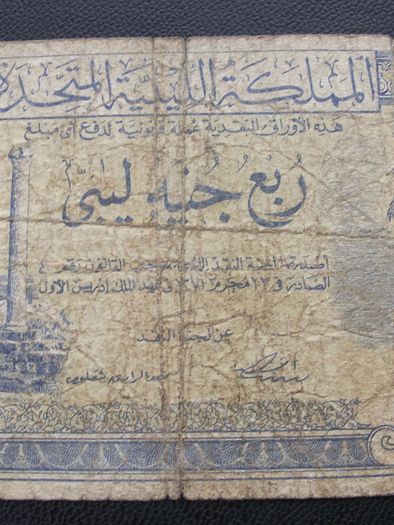 المملكة الليبية المتحدة
هذه الأوراق النقدية عملة قانونية لدفع أي مبلغ
ربع جنيه ليبي
أصدرتها لجنة النقد الليبية بموجب القانون رقم ٤
الصادر في ٢٣ محرم ١٣٧١ في عهد الملك إدريس الأول
عن لجنة النقد